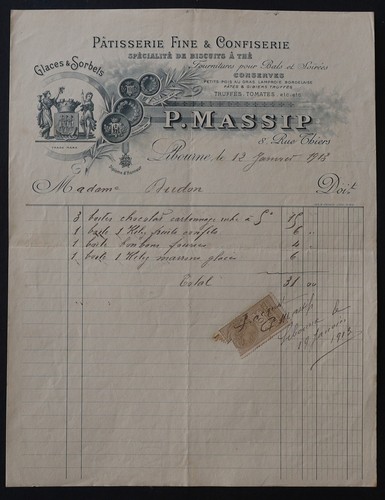 PÂTISSERIE FINE & CONFISERIE
SPÉCIALITÉ DE BISCUITS À THÉ
Glaces & Sorbets
Fournitures pour Bals et Soirées
CONSERVES
PETITS-POIS AU GRAS, LAMPROIE, BORDELAISE
PÂTÉS & GIBIERS TRUFFÉS
TRUFFES, TOMATES, etc-etc.
P. MASSIP
8, Rue Thiers
Libourne le 12 Janvier 1913
Madame Doit
3 boites chocolat cartonnage à 5
1 boite 1 Kilog fruits confits 6
1 boite bonbons fourrés 4
1 boite 1 Kilog marrons glacés 6
Total 31
P. Massip
Libourne le
12 Janvier
1913